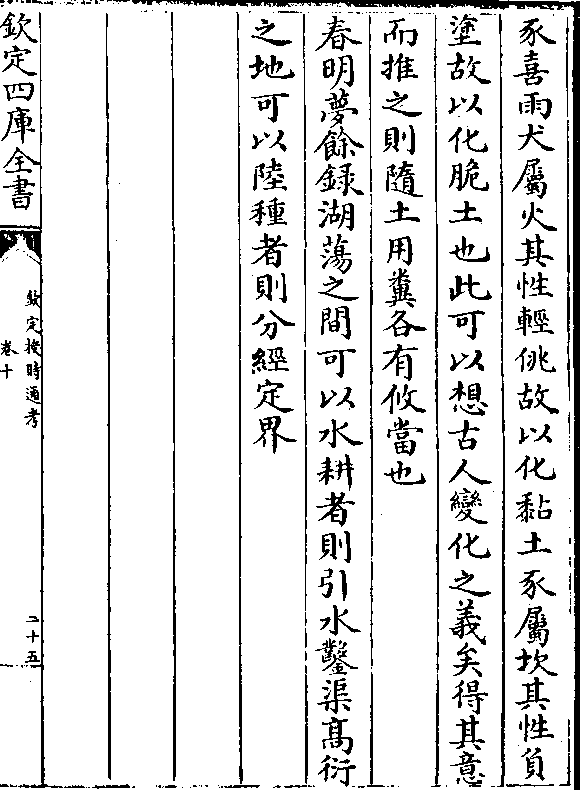 豕喜雨犬屬火其性輕佻故以化黏土豕屬坎其性負
塗故以化脆土也此可以想古人變化之義矣得其意
而推之則隨土用糞各有攸當也
春明夢餘録湖蕩之間可以水耕者則引水鑿渠髙衍
之地可以陸種者則分經定界
欽定四庫全書
欽定授時通考
卷十
二十五